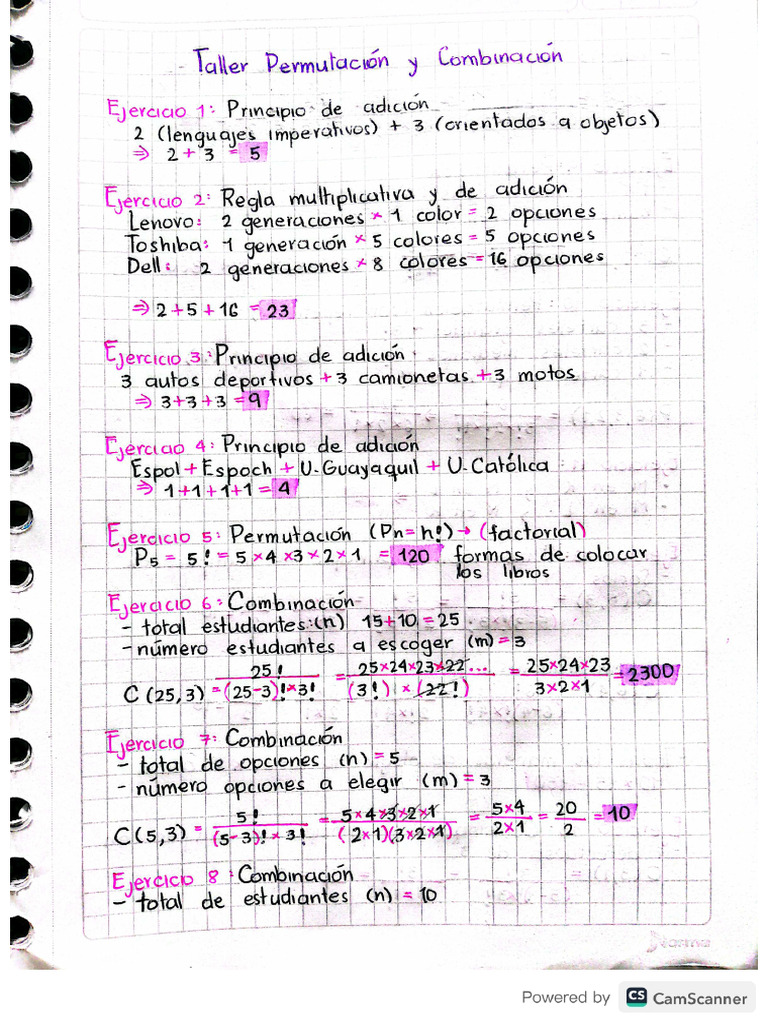 Taller Permutación y Combinación
Ejercicio 1: Principio de adición
2 (lenguajes imperativos) + 3 (orientados a objetos)
⇒ 2 + 3 = 5
Ejercicio 2: Regla multiplicativa y de adición
Lenovo: 2 generaciones × 1 color = 2 opciones
Toshiba: 1 generación × 5 colores = 5 opciones
Dell: 2 generaciones × 8 colores = 16 opciones
⇒ 2 + 5 + 16 = 23
Ejercicio 3: Principio de adición
3 autos deportivos + 3 camionetas + 3 motos
⇒ 3+3+3 = 9
Ejercicio 4: Principio de adición
Espol + Espoch + U. Guayaquil + U. Católica
⇒ 1+1+1+1 = 4
Ejercicio 5: Permutación (Pn = h!) → (factorial)
P5 = 5! = 5×4×3×2×1 = 120 formas de colocar
los libros
Ejercicio 6: Combinación
- total estudiantes: (n) 15+10 = 25
- número estudiantes a escoger (m) = 3
C (25,3) = 25! / (25-3)! × 3! = 25×24×23×22... / (3!) × (22!) = 25×24×23 / 3×2×1 = 2300
Ejercicio 7: Combinación
- total de opciones (n) = 5
- número opciones a elegir (m) = 3
C (5,3) = 5! / (5-3)! × 3! = 5×4×3×2×1 / (2×1)(3×2×1) = 5×4 / 2×1 = 20 / 2 = 10
Ejercicio 8: Combinación
- total de estudiantes (n) = 10
Norma
Powered by CS CamScanner